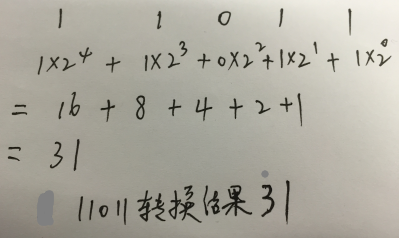 1 1 0 1 1
1×2⁴ + 1×2³ + 0×2² + 1×2¹ + 1×2⁰
= 16 + 8 + 4 + 2 + 1
= 31
11011转换结果31